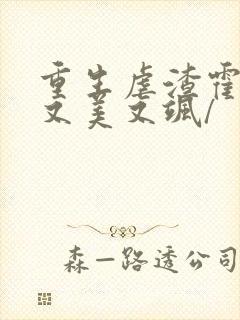 重生虐渣霍
又美又飒/
森一路透公司